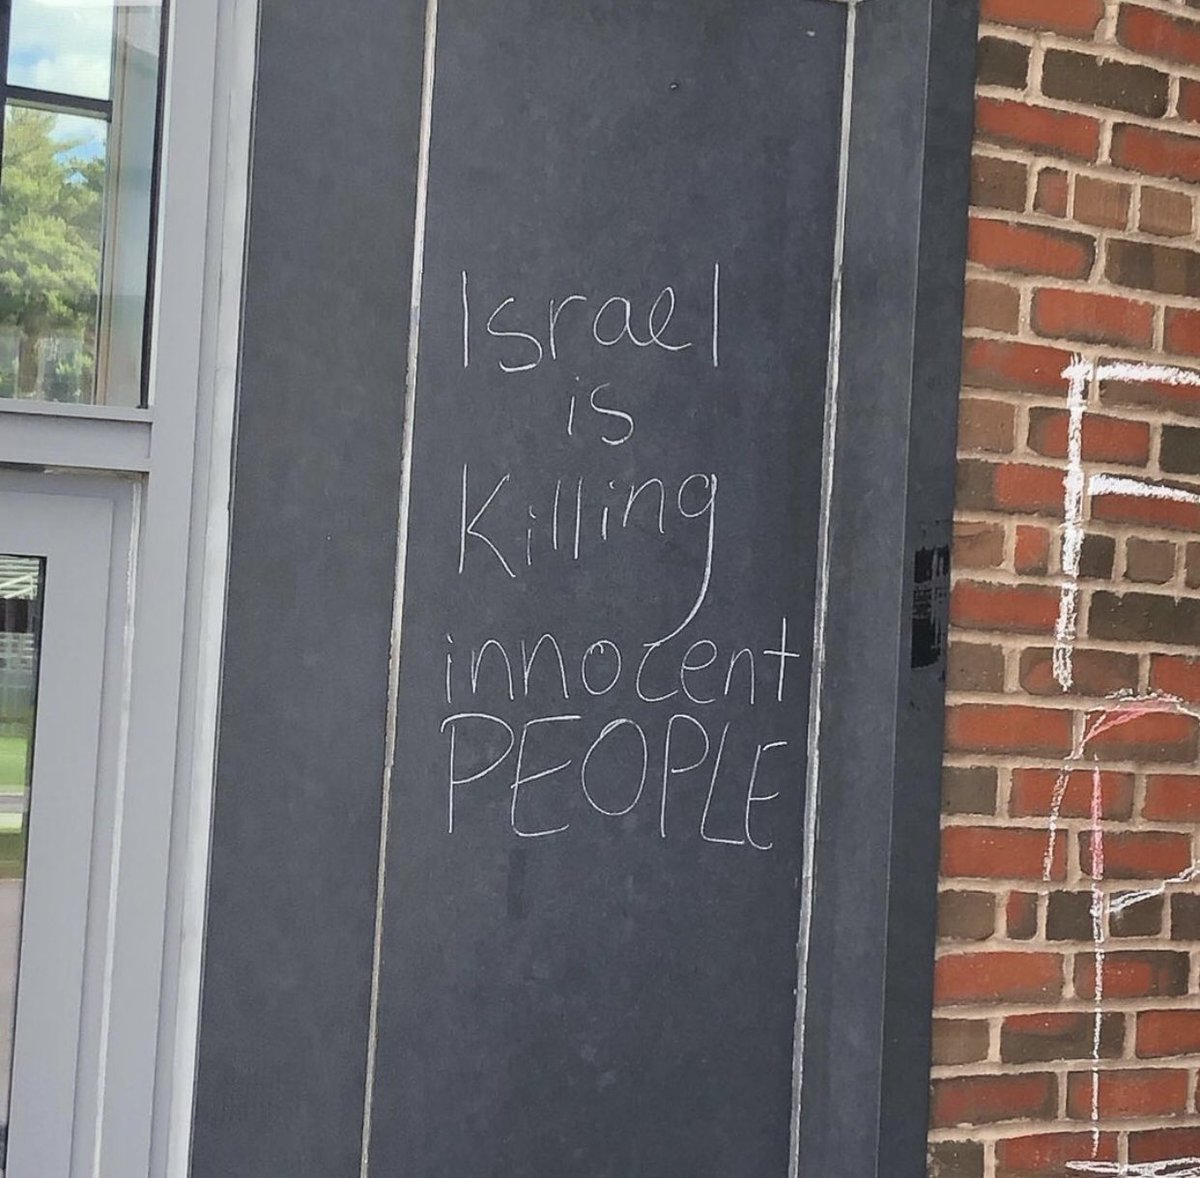 Israel
is
Killing
innocent
PEOPLE